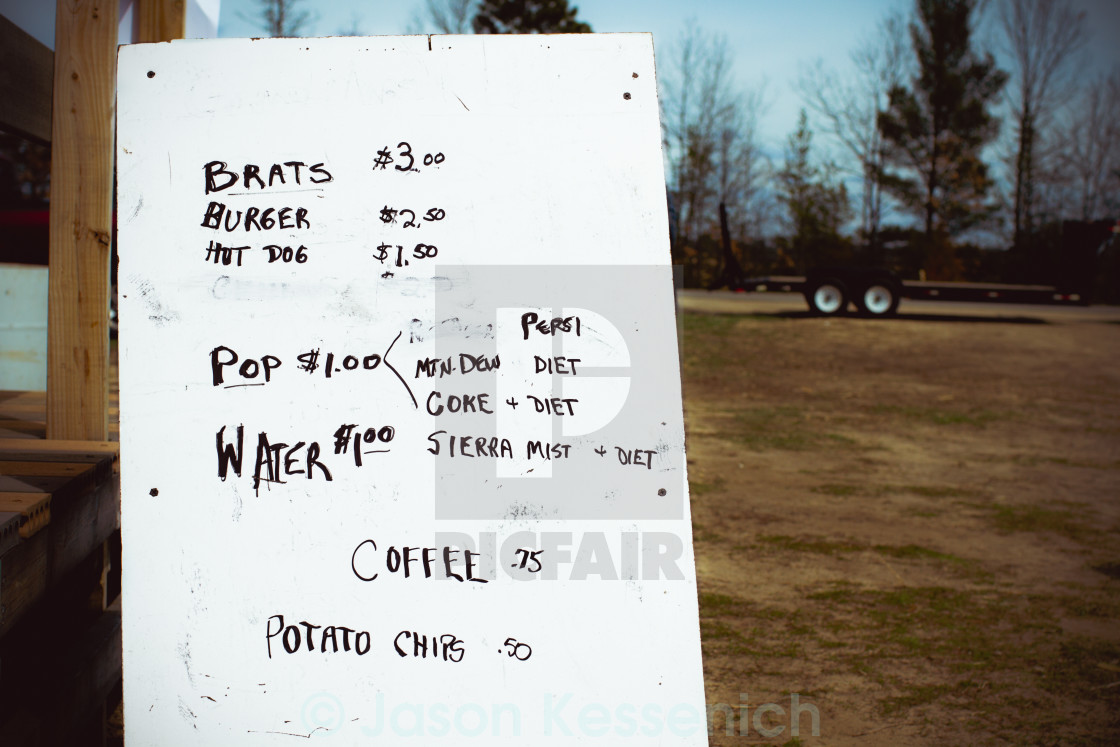 BRATS $3.00
BURGER $2.50
HOT DOG $1.50
PEPSI
POP $1.00 MTN. DEW DIET
COKE + DIET
WATER $1.00 SIERRA MIST + DIET
COFFEE .75
POTATO CHIPS .50
PICFAIR
© Jason Kessenich